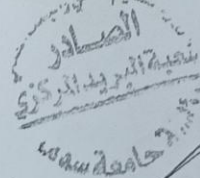 الصادر
شعبة البريد المركزي
جامعة سومر